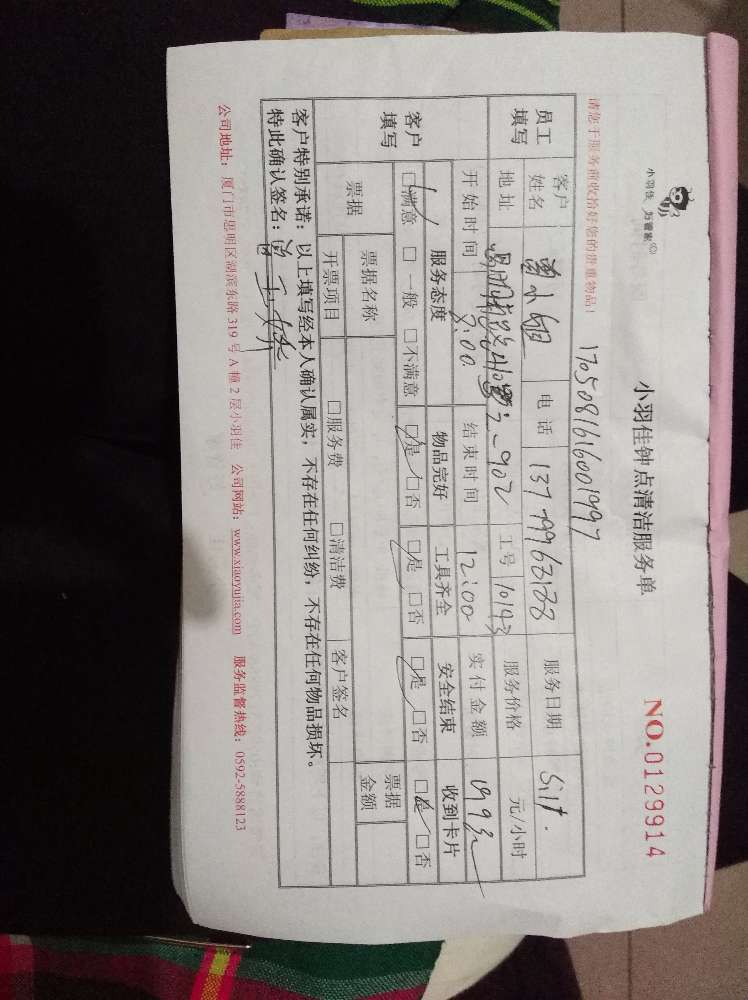 小羽佳 好管家
小羽佳钟点清洁服务单
NO.0129914
请您于服务前收拾好您的贵重物品！
1705081616001997
员工填写 客户姓名 曾小姐 电话 服务日期
地址 工号 10193 服务价格 元/小时
开始时间 结束时间 12:00 实付金额
客户填写 服务态度 物品完好 工具齐全 安全结束 收到卡片
□满意 □一般 □不满意 □是 □否 □是 □否 □是 □否 □是 □否
票据 票据名称 票据金额
开票项目 □服务费 □清洁费 客户签名
客户特别承诺：以上填写经本人确认属实，不存在任何纠纷，不存在任何物品损坏。
特此确认签名：
公司地址：厦门市思明区湖滨东路 319 号 A 幢 2 层小羽佳 公司网站：www.xiaoyujia.com 服务监督热线：0592-5888123